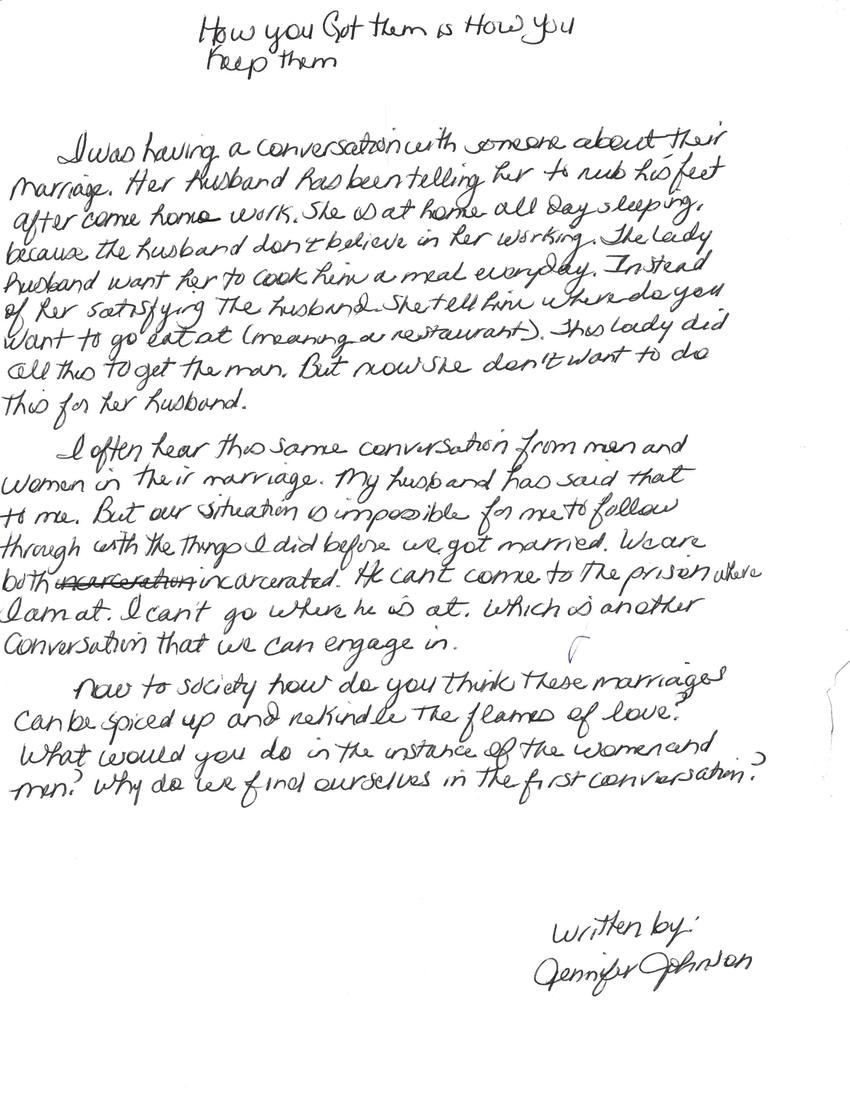 How you Got them is How you
Keep them
I was having a conversation with someone about their
marriage. Her husband has been telling her to rub his feet
after come home work. She is at home all Day sleeping,
because the husband don't believe in her working. The lady
husband want her to cook him a meal everyday. Instead
of her satisfying the husband. She tell him where do you
want to go eat at (meaning a restaurant). This lady did
all this to get the man. But now she don't want to do
this for her husband.
I often hear this same conversation from men and
women in their marriage. My husband has said that
to me. But our situation is impossible for me to follow
through with the things I did before we got married. We are
both incarceration incarcerated. He can't come to the prison where
I am at. I can't go where he is at. Which is another
Conversation that we can engage in.
Now to society how do you think these marriages
can be spiced up and rekindle the flames of love?
What would you do in the instance of the women and
men? Why do we find ourselves in the first conversation?
Written by:
Jennifer Johnson